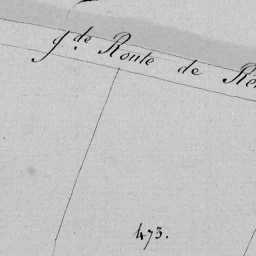 g.de Route de
473.